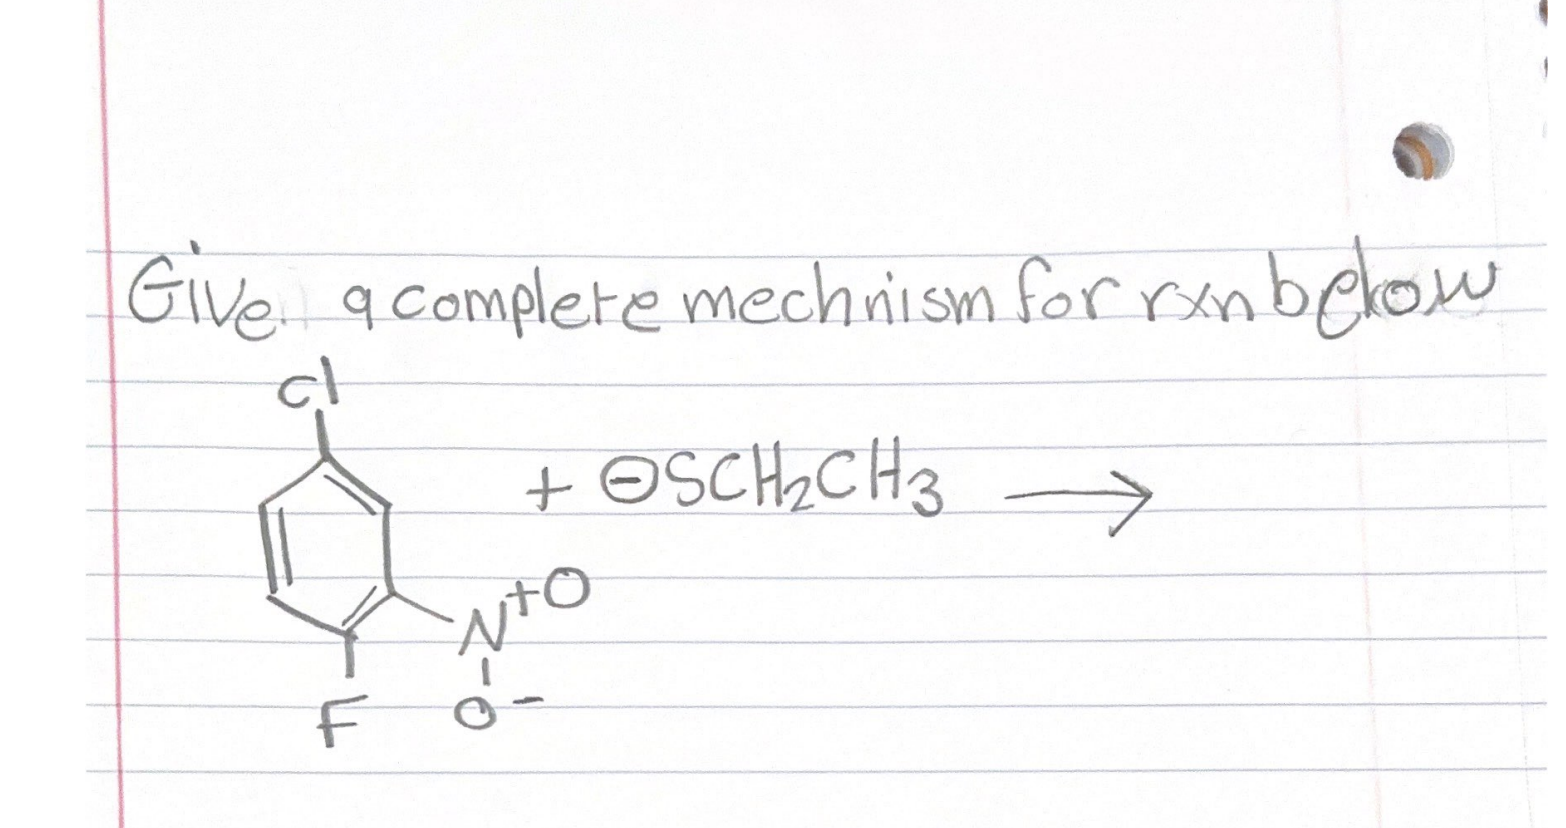 Give a complete mechnism for rxn below
Cl
+ ⊖SCH₂CH₃ ⟶
N⁺O
F O⁻